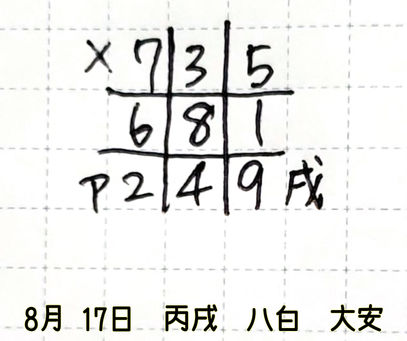 × 7 3 5
6 8 1
P 2 4 9 戌
8月 17日 丙戌 八白 大安